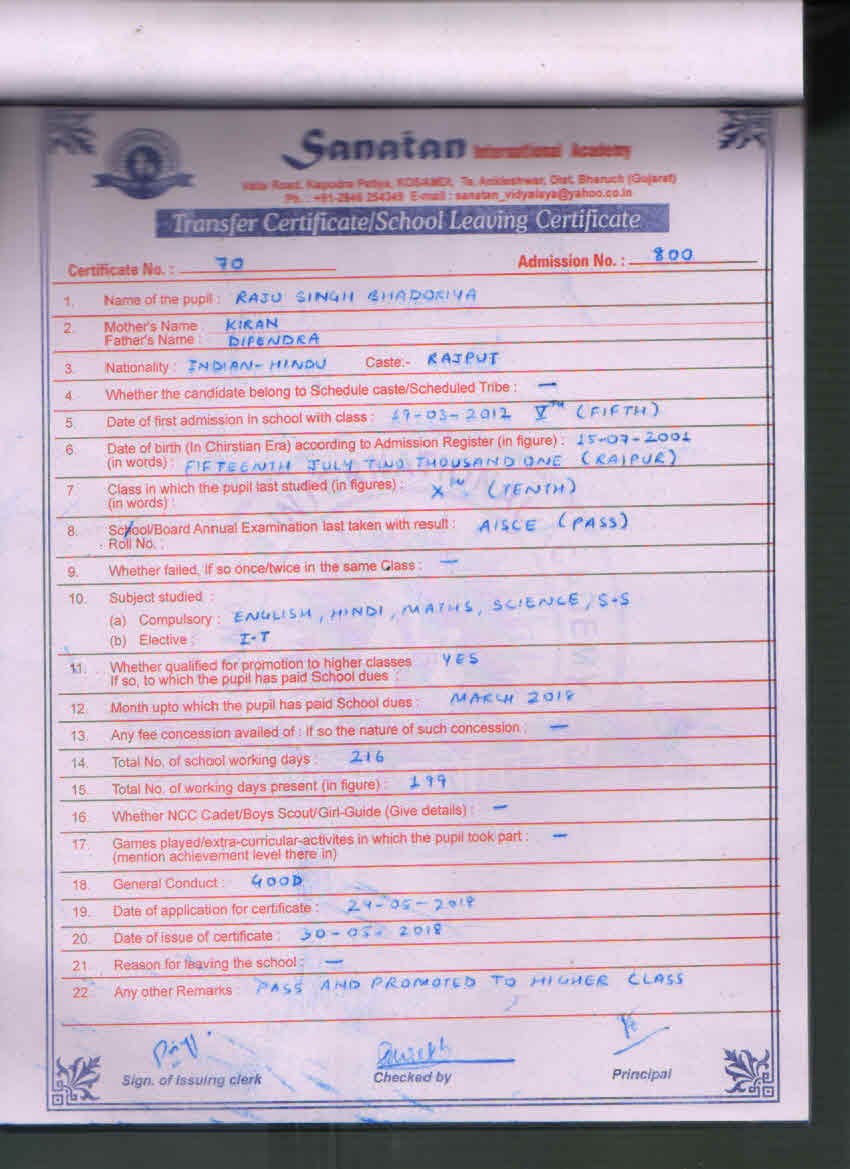 Sanatan International Academy
Valia Road, Kapodra Patiya, KOSAMDI, Ta. Ankleshwar, Dist. Bharuch (Gujarat)
Ph. : +91-2646 254349 E-mail : sanatan_vidyalaya@yahoo.co.in
Transfer Certificate/School Leaving Certificate
Certificate No. : 70 Admission No. : 800
1. Name of the pupil : RAJU SINGH BHADORIYA
2. Mother's Name : KIRAN
Father's Name : DIPENDRA
3. Nationality : INDIAN-HINDU Caste:- RAJPUT
4. Whether the candidate belong to Schedule caste/Scheduled Tribe : —
5. Date of first admission in school with class : -03-2012 VTH (FIFTH)
6. Date of birth (In Chirstian Era) according to Admission Register (in figure) : 15-07-2001
(in words) : FIFTEENTH JULY TWO THOUSAND ONE (RAIPUR)
7 Class in which the pupil last studied (in figures) : XTH (TENTH)
(in words) :
8. School/Board Annual Examination last taken with result : AISCE (PASS)
Roll No. :
9. Whether failed, If so once/twice in the same Class : —
10. Subject studied :
(a) Compulsory : ENGLISH, HINDI, MATHS, SCIENCE, S.S
(b) Elective : I-T
11. Whether qualified for promotion to higher classes YES
If so, to which the pupil has paid School dues :
12. Month upto which the pupil has paid School dues : MARCH 2018
13. Any fee concession availed of : if so the nature of such concession : —
14. Total No. of school working days : 216
15. Total No. of working days present (in figure) : 199
16. Whether NCC Cadet/Boys Scout/Girl-Guide (Give details) : —
17. Games played/extra-curricular-activites in which the pupil took part : —
(mention achievement level there in)
18. General Conduct : GOOD
19. Date of application for certificate : 29-05-2018
20. Date of issue of certificate : 30-05-2018
21. Reason for leaving the school : —
22. Any other Remarks : PASS AND PROMOTED TO HIGHER CLASS
Sign. of issuing clerk Checked by Principal